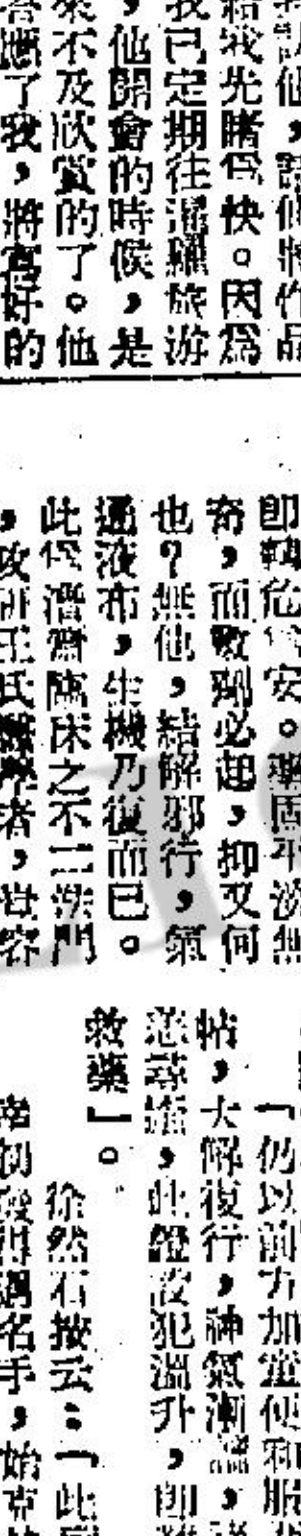 給我先睹爲快。因爲
我已定期往灑驪旅游
，他開會的時候，是
來不及欣賞的了。他
答應了我，將寫好的
即轉危爲安。藥固平淡無
奇，而數劑必起，抑又何
也？無他，結解邪行，氣
通液布，生機乃復而已。
此爲潛齋臨床之不二法門
，攻研王氏醫學者，豈容
「仍以前方加童便和服
帖，大解復行，神氣漸
，此證設犯溫升，即
救藥」。
徐然石按云：「此
幸初發得遇名手，始克